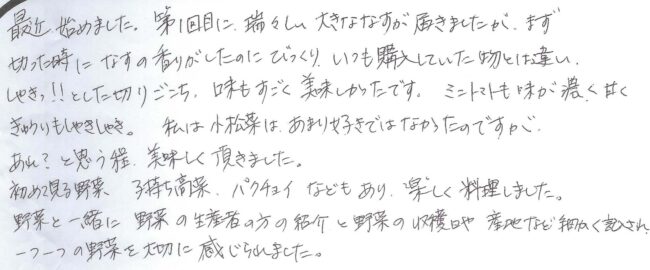 最近、始めました。第1回目に、瑞々しい大きななすが届きましたが、まず
切った時に なすの香りがしたのにびっくり、いつも購入していた物とは違い、
しゃきっ!!とした切りごこち、味もすごく美味しかったです。ミニトマトも味が濃く、甘く
きゅうりもしゃきしゃき。私は小松菜は、あまり好きではなかったのですが、
あれ?と思う程、美味しく頂きました。
初めて見る野菜 子持ち高菜、パクチョイ などもあり、楽しく料理しました。
野菜と一緒に 野菜の生産者の方の紹介と野菜の収穫日や 産地など細かく記入され、
一つ一つの野菜を大切に感じられました。